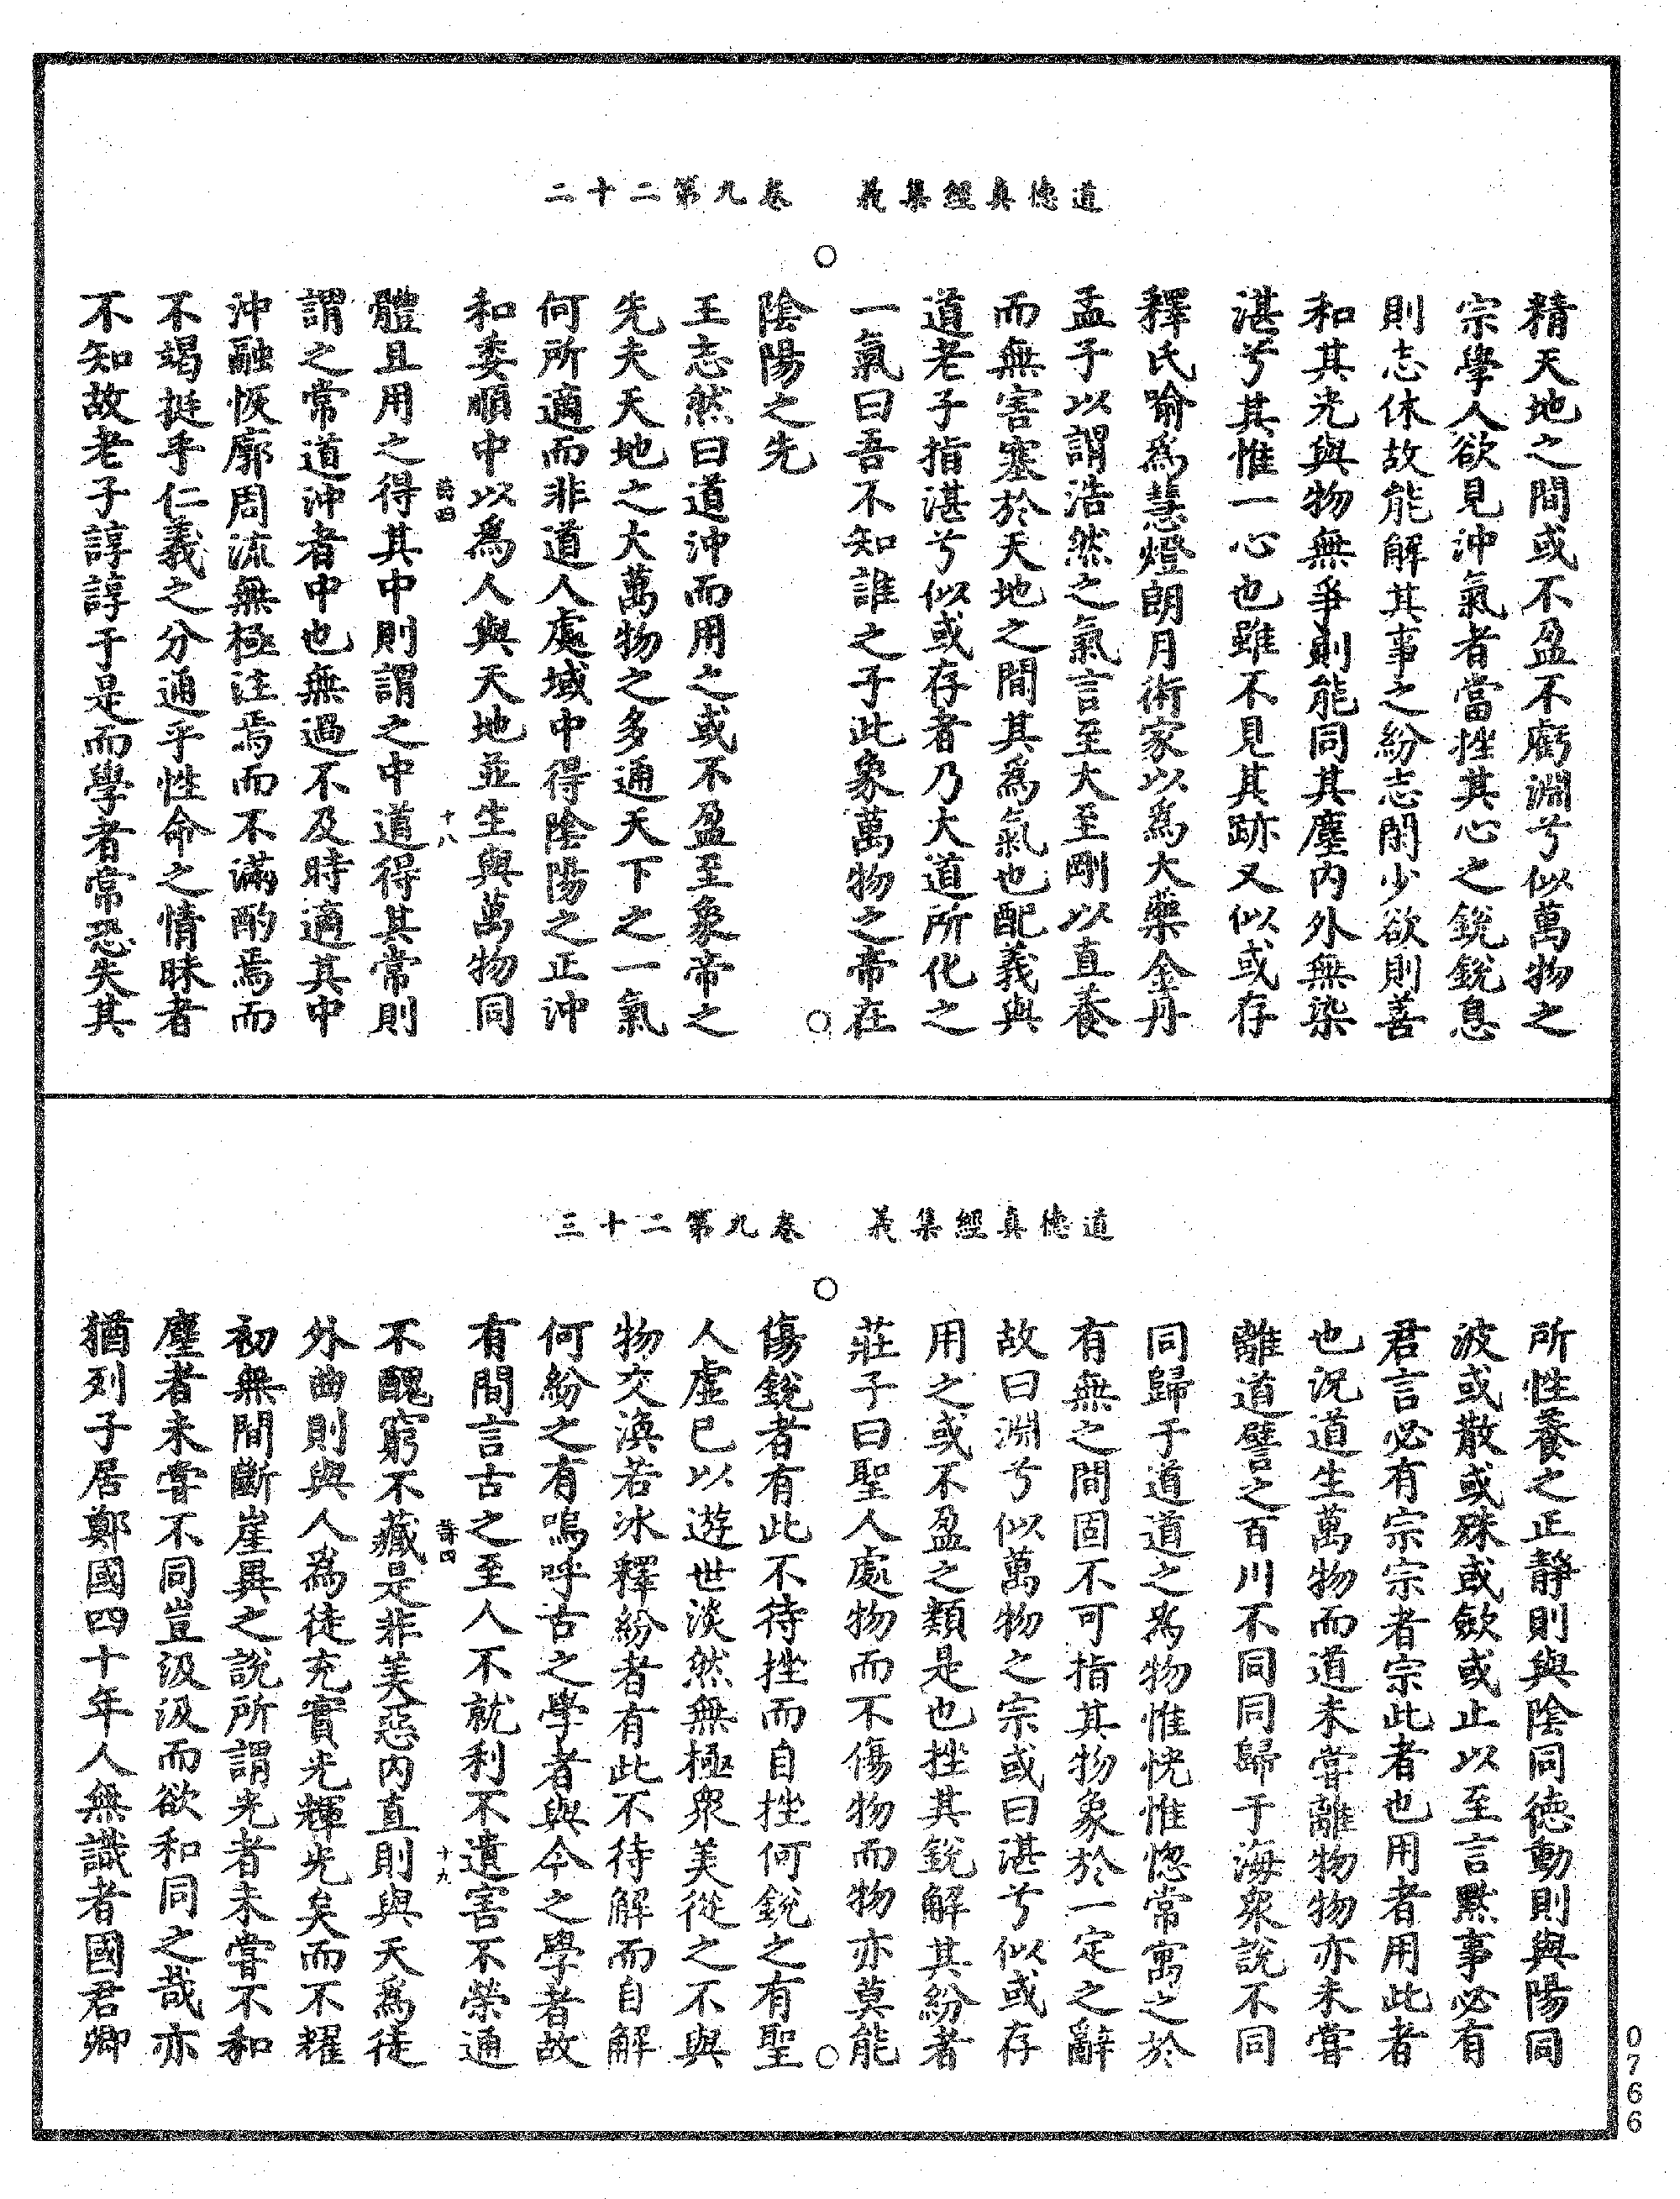 道德真經集義　卷九第二十二
精天地之間或不盈不虧淵兮似萬物之
宗學人欲見沖氣者當挫其心之銳銳息
則志休故能解其事之紛志閑少欲則善
和其光與物無爭則能同其塵內外無染
湛兮其惟一心也雖不見其跡又似或存
釋氏喻為慧燈朗月術家以為大藥金丹
孟子以謂浩然之氣言至大至剛以直養
而無害塞於天地之間其為氣也配義與
道老子指湛兮似或存者乃大道所化之
一氣曰吾不知誰之子此象萬物之帝在
陰陽之先
王志然曰道沖而用之或不盈至象帝之
先夫天地之大萬物之多通天下之一氣
何所適而非道人處域中得陰陽之正沖
和委順中以為人與天地並生與萬物同
十八
體且用之得其中則謂之中道得其常則
謂之常道沖者中也無過不及時適其中
沖融恢廓周流無極注焉而不滿酌焉而
不竭挺乎仁義之分通乎性命之情昧者
不知故老子諄諄于是而學者常恐失其
道德真經集義　卷九第二十三
所性養之正靜則與陰同德動則與陽同
波或散或殊或斂或止以至言黙事必有
君言必有宗宗者宗此者也用者用此者
也況道生萬物而道未嘗離物物亦未嘗
離道譬之百川不同同歸于海衆說不同
同歸于道道之為物惟恍惟惚常寓之於
有無之間固不可指其物象於一定之辭
故曰淵兮似萬物之宗或曰湛兮似或存
用之或不盈之類是也挫其銳解其紛者
莊子曰聖人處物而不傷物而物亦莫能
傷銳者有此不待挫而自挫何銳之有聖
人虛已以遊世淡然無極衆美從之不與
物交渙若冰釋紛者有此不待解而自解
何紛之有嗚呼古之學者與今之學者故
有間言古之至人不就利不遺害不榮通
十九
不醜窮不藏是非美惡內直則與天為徒
外曲則與人為徒充實光輝光矣而不耀
初無間斷崖異之說所謂光者未嘗不和
塵者未嘗不同豈汲汲而欲和同之哉亦
猶列子居鄭國四十年人無識者國君卿
0766